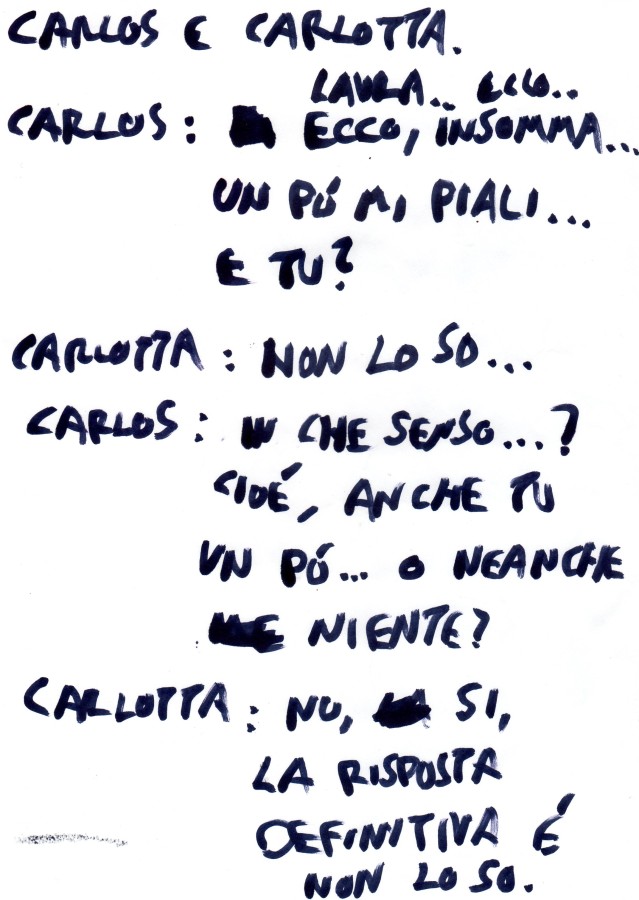 CARLOS E CARLOTTA.
LAURA.. ECCO..
CARLOS: ECCO, INSOMMA...
UN PÓ MI PIALI...
E TU?
CARLOTTA: NON LO SO...
CARLOS: IN CHE SENSO...?
CIOÉ, ANCHE TU
UN PÓ... O NEANCHE
NIENTE?
CARLOTTA: NO, SI,
LA RISPOSTA
DEFINITIVA É
NON LO SO.